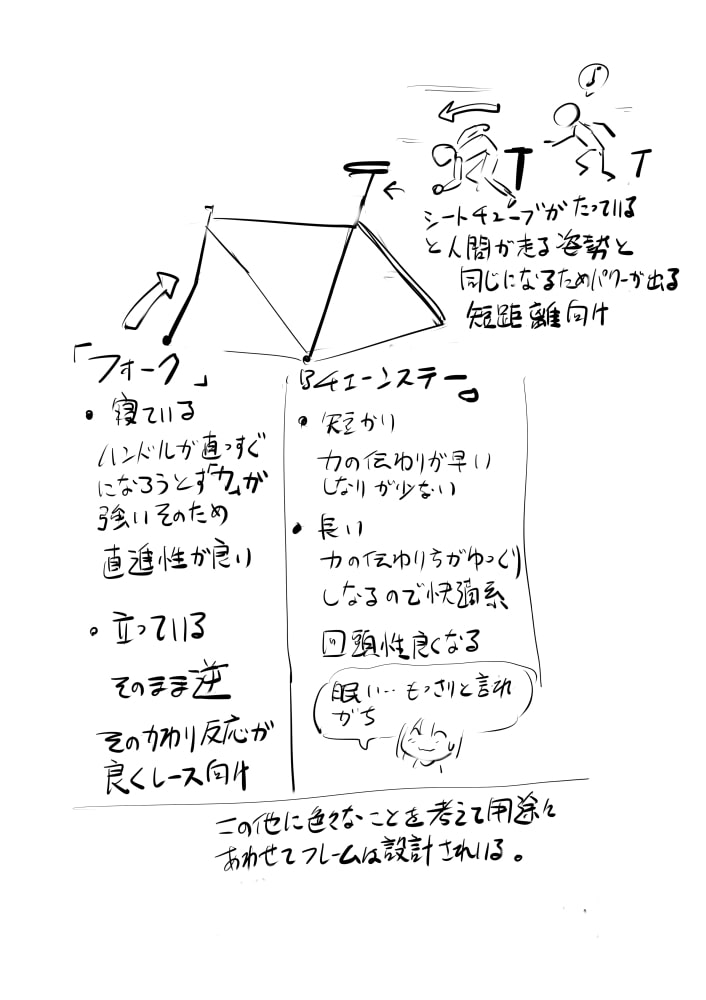 シートチューブがたっている
と人間が走る姿勢と
同じになるためパワーが出る
短距離向け
「フォーク」
• 寝ている
ハンドルが直っすぐ
になろうとす「力」が
強いそのため
直進性が良い
• 立っている
そのまま逆
そのかわり反応が
良くレース向け
チェーンステー。
• 短かい
力の伝わりが早い
しなりが少ない
• 長い
力の伝わりちがゆっくり
しなるので快適系
回頭性良くなる
眠い…もっさりと言われ
がち
この他に色々なことを考えて用途に
あわせてフレームは設計されいる。